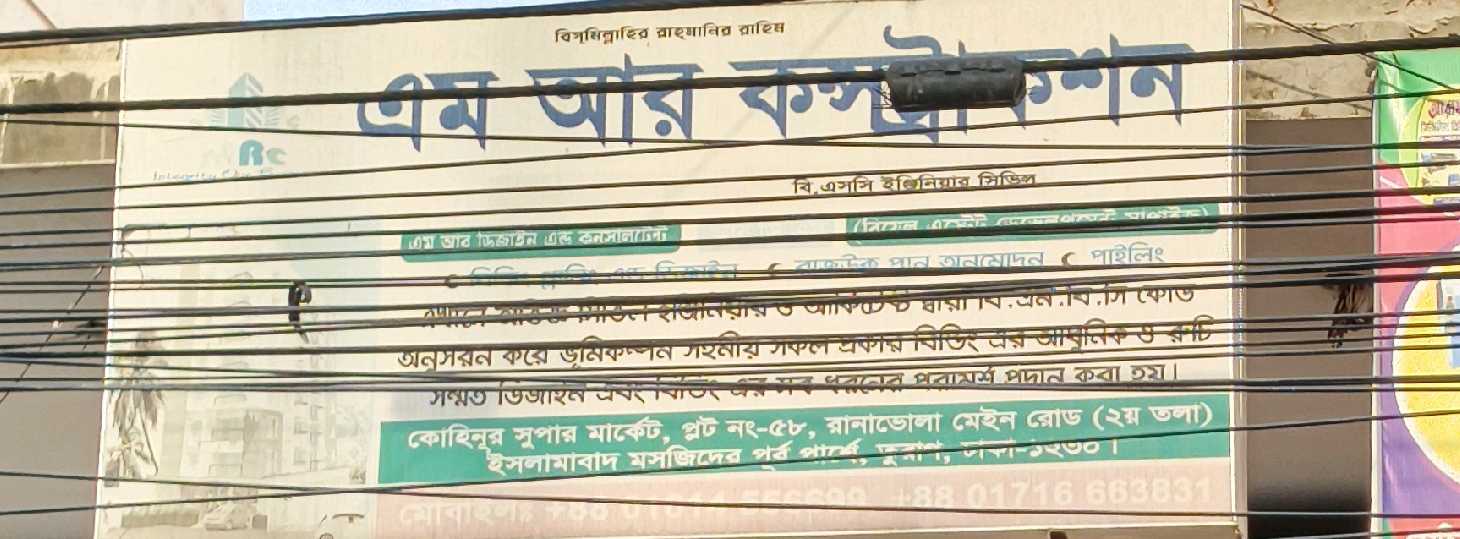 বিসমিল্লাহির রাহমানির রাহিম
এম আর কন্সট্রাকশন
Rc
বি.এসসি ইঞ্জিনিয়ার সিভিল
এম আর ডিজাইন এন্ড কনসালটেন্সি
রাজউক প্লান অনুমোদন ৫ পাইলিং
এখানে অভিজ্ঞ সিভিল ইঞ্জিনিয়ার ও আর্কিটেক্ট দ্বারা বি.এন.বি.সি কোড
অনুসরন করে ভূমিকম্পন সহনীয় সকল প্রকার বিল্ডিং এর আধুনিক ও রুচি
সম্মত ডিজাইন এবং বিল্ডিং এর সব ধরনের পরামর্শ প্রদান করা হয়।
কোহিনূর সুপার মার্কেট, প্লট নং-৫৮, রানাভোলা মেইন রোড (২য় তলা)
ইসলামাবাদ মসজিদের পূর্ব পার্শ্বে, তুরাগ, ঢাকা-১২৩০।
মোবাইলঃ +88 +88 01716 663831